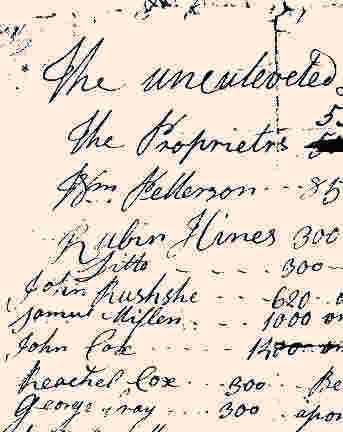 The unculeveted
55
The Proprietrs
Wm Pellerson - - - 85
Rubin Hines 300
Ditto - - - - 300 -
John Rushshe - - - 620 -
Samul Miflen - - - - 1000 on
John Cox - - - - 1400 on
Reachel Cox - - - 300 - Be
George Gray - - - 300 - apon